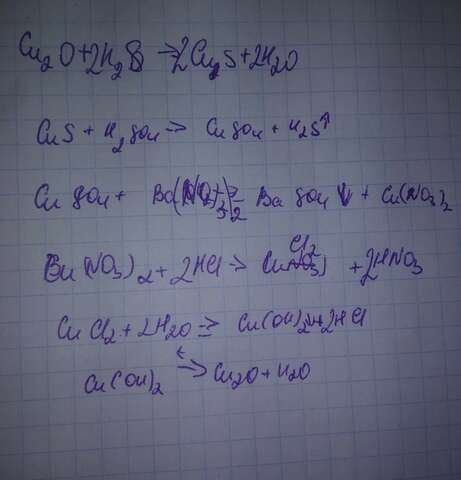 Cu2O+2H2S→2Cu2S+2H2O
CuS + H2SO4 → CuSO4 + H2S↑
CuSO4 + Ba(NO3)2 → BaSO4↓ + Cu(NO3)2
Cu(NO3)2 + 2HCl → CuCl2 + 2HNO3
CuCl2 + 2H2O ⇒ Cu(OH)2 + 2HCl
Cu(OH)2 t→ Cu2O + H2O